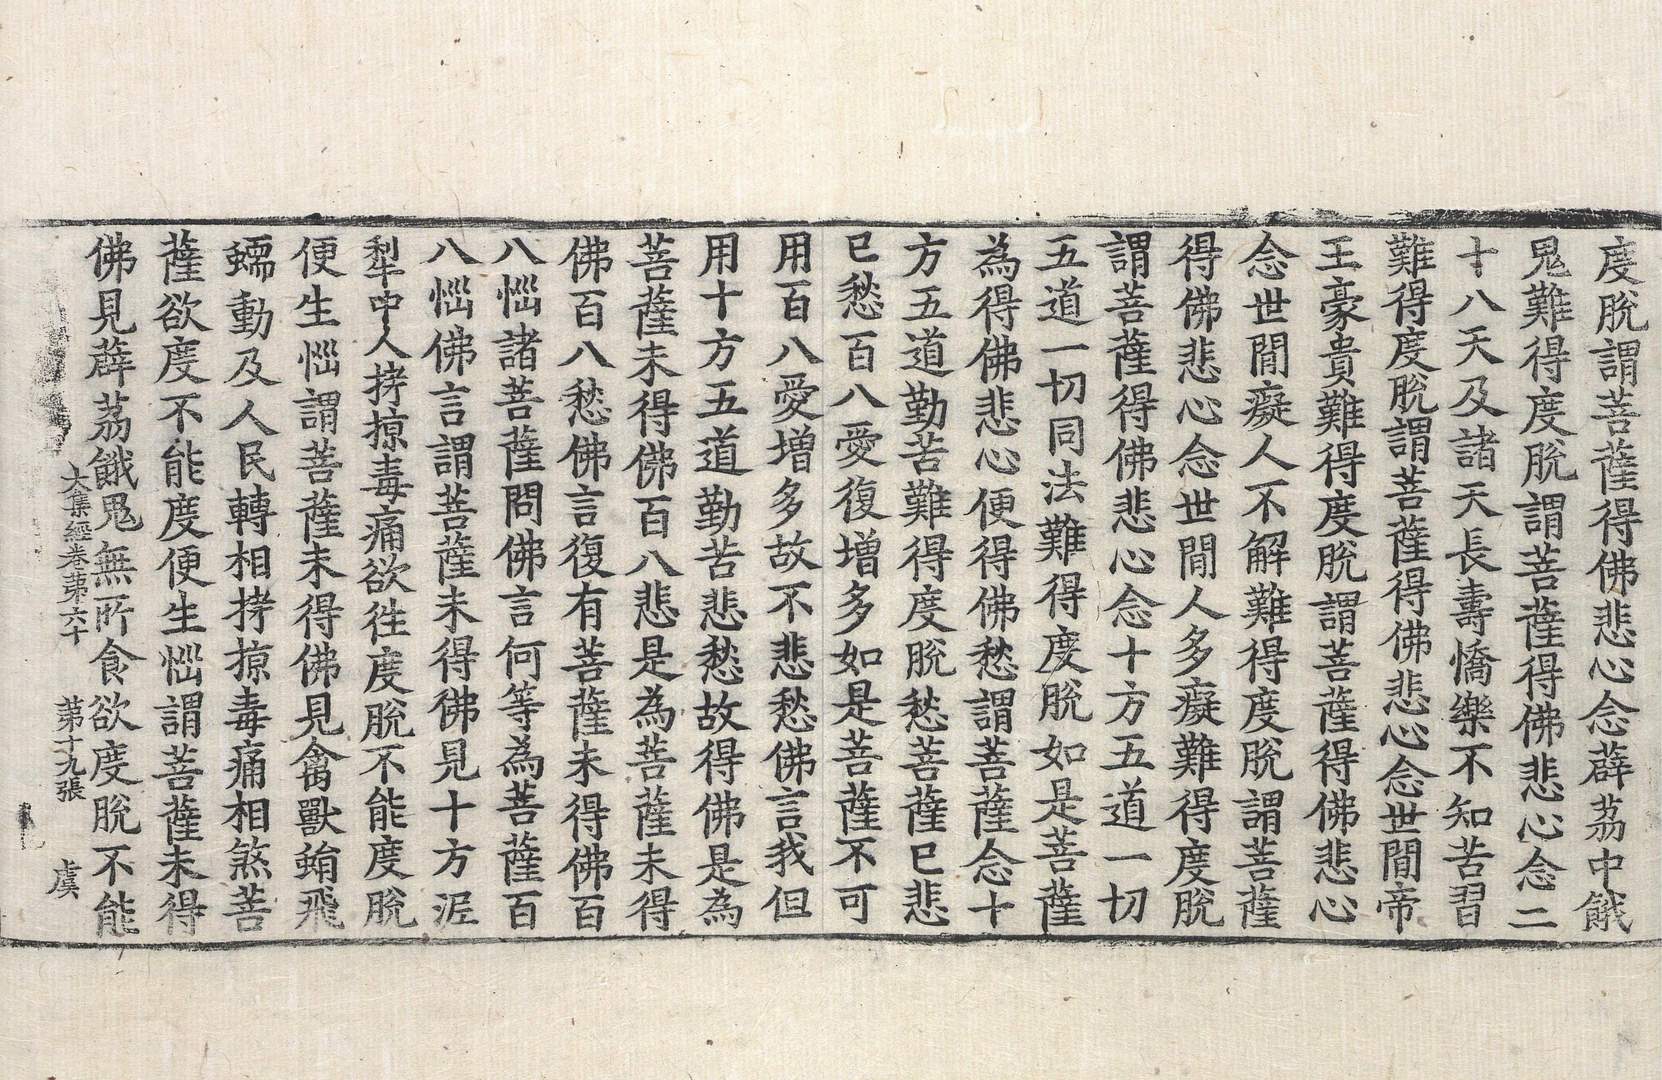 度脫謂菩薩得佛悲心念薜荔中餓
鬼難得度脫謂菩薩得佛悲心念二
十八天及諸天長壽憍樂不知苦習
難得度脫謂菩薩得佛悲心念世間帝
王豪貴難得度脫謂菩薩得佛悲心
念世間癡人不解難得度脫謂菩薩
得佛悲心念世間人多癡難得度脫
謂菩薩得佛悲心念十方五道一切
五道一切同法難得度脫如是菩薩
為得佛悲心便得佛愁謂菩薩念十
方五道勤苦難得度脫愁菩薩已悲
已愁百八愛復增多如是菩薩不可
用百八愛增多故不悲愁佛言我但
用十方五道勤苦悲愁故得佛是為
菩薩未得佛百八悲是為菩薩未得
佛百八愁佛言復有菩薩未得佛百
八惱諸菩薩問佛言何等為菩薩百
八惱佛言謂菩薩未得佛見十方泥
犁中人搒掠毒痛欲徃度脫不能度脫
便生惱謂菩薩未得佛見禽獸蜎飛
蠕動及人民轉相搒掠毒痛相煞菩
薩欲度不能度便生惱謂菩薩未得
佛見薜荔餓鬼無所食欲度脫不能
大集經卷苐六十 苐十九張 虞